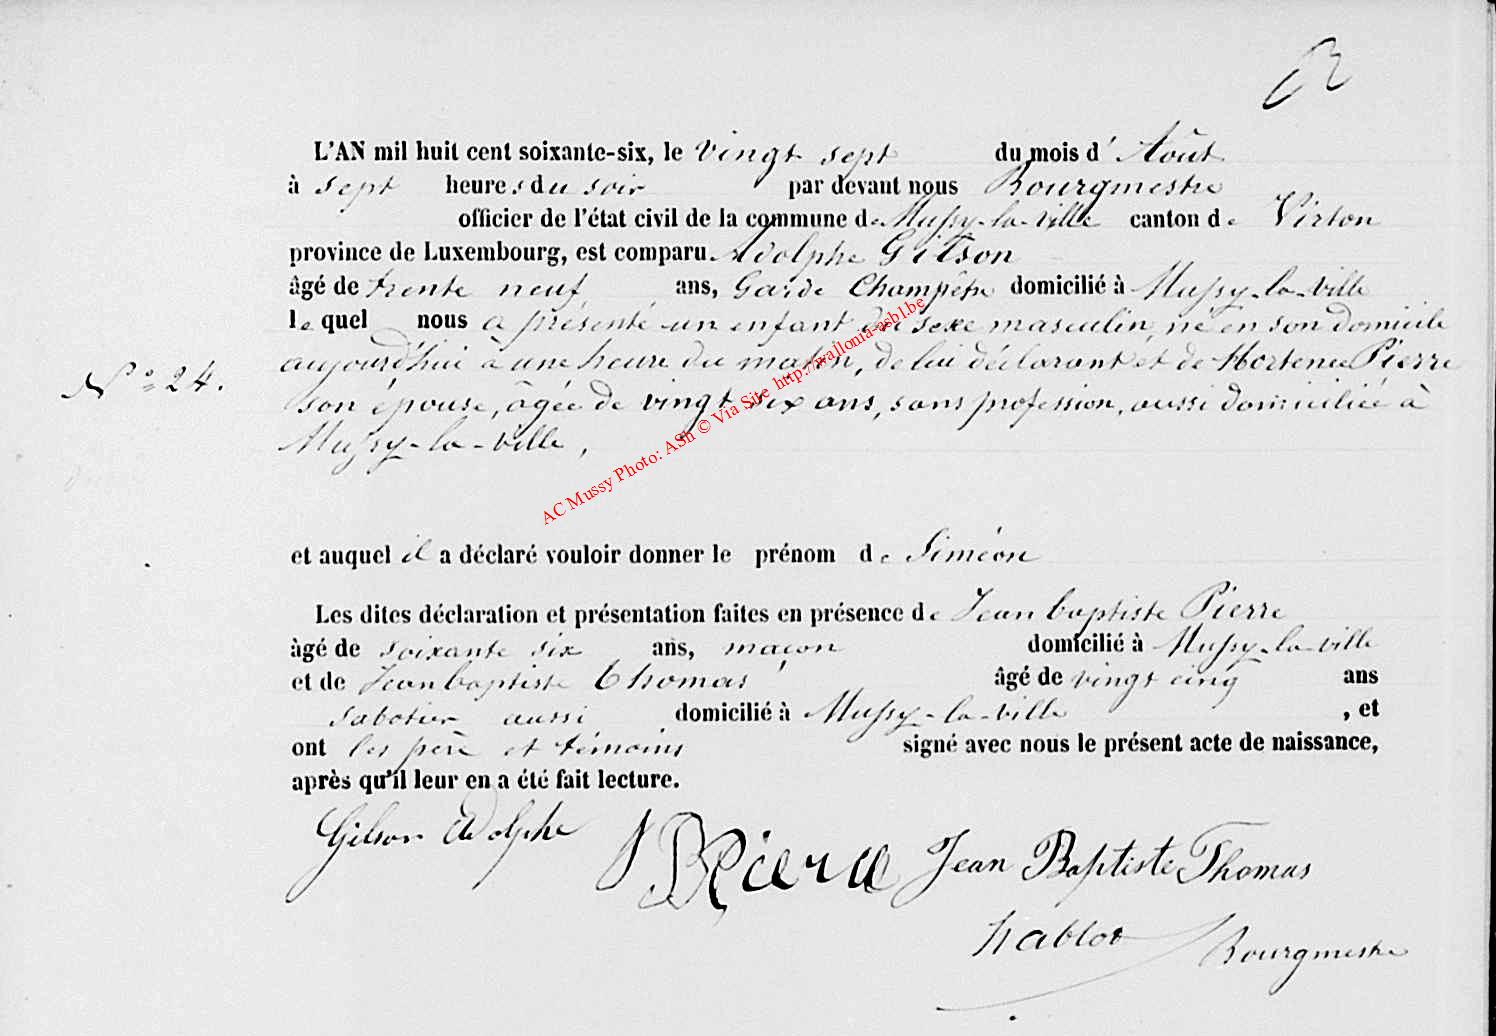 L'AN mil huit cent soixante-six, le vingt sept du mois d'Août
à sept heures du soir par devant nous Bourgmestre
officier de l'état civil de la commune de Mussy-la-ville canton de Virton
province de Luxembourg, est comparu Adolphe Gilson
âgé de trente neuf ans, Garde Champêtre domicilié à Mussy-la-ville
le quel nous a présenté un enfant du sexe masculin, né en son domicile
aujourd'hui à une heure du matin, de lui déclarant et de Hortence Pierre
N° 24.
son épouse, âgée de vingt six ans, sans profession, aussi domiciliée à
Mussy-la-ville,
et auquel il a déclaré vouloir donner le prénom de Siméon
Les dites déclaration et présentation faites en présence de Jean baptiste Pierre
âgé de soixante six ans, maçon domicilié à Mussy-la-ville
et de Jean baptiste Thomas âgé de vingt cinq ans
sabotier aussi domicilié à Mussy-la-ville , et
ont les père et témoins signé avec nous le présent acte de naissance,
après qu'il leur en a été fait lecture.
Gilson Adolphe
JB Piere Jean Baptiste Thomas
hablot Bourgmestre
AC Mussy Photo: ASh © Via Site http://wallonia-asbl.be